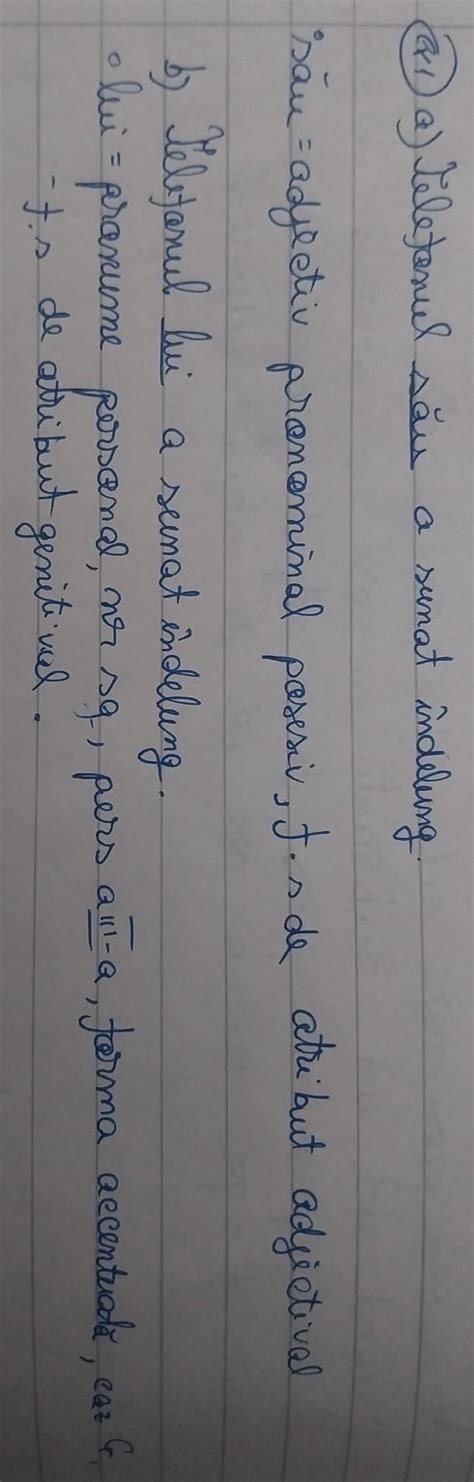 ex1 a) Telefonul său a sunat îndelung.
său = adjectiv pronominal posesiv, f.s de atribut adjectival
b) Telefonul lui a sunat îndelung.
lui = pronume personal, nr sg, pers a III-a, forma accentuată, caz G,
- f.s de atribut genitival.